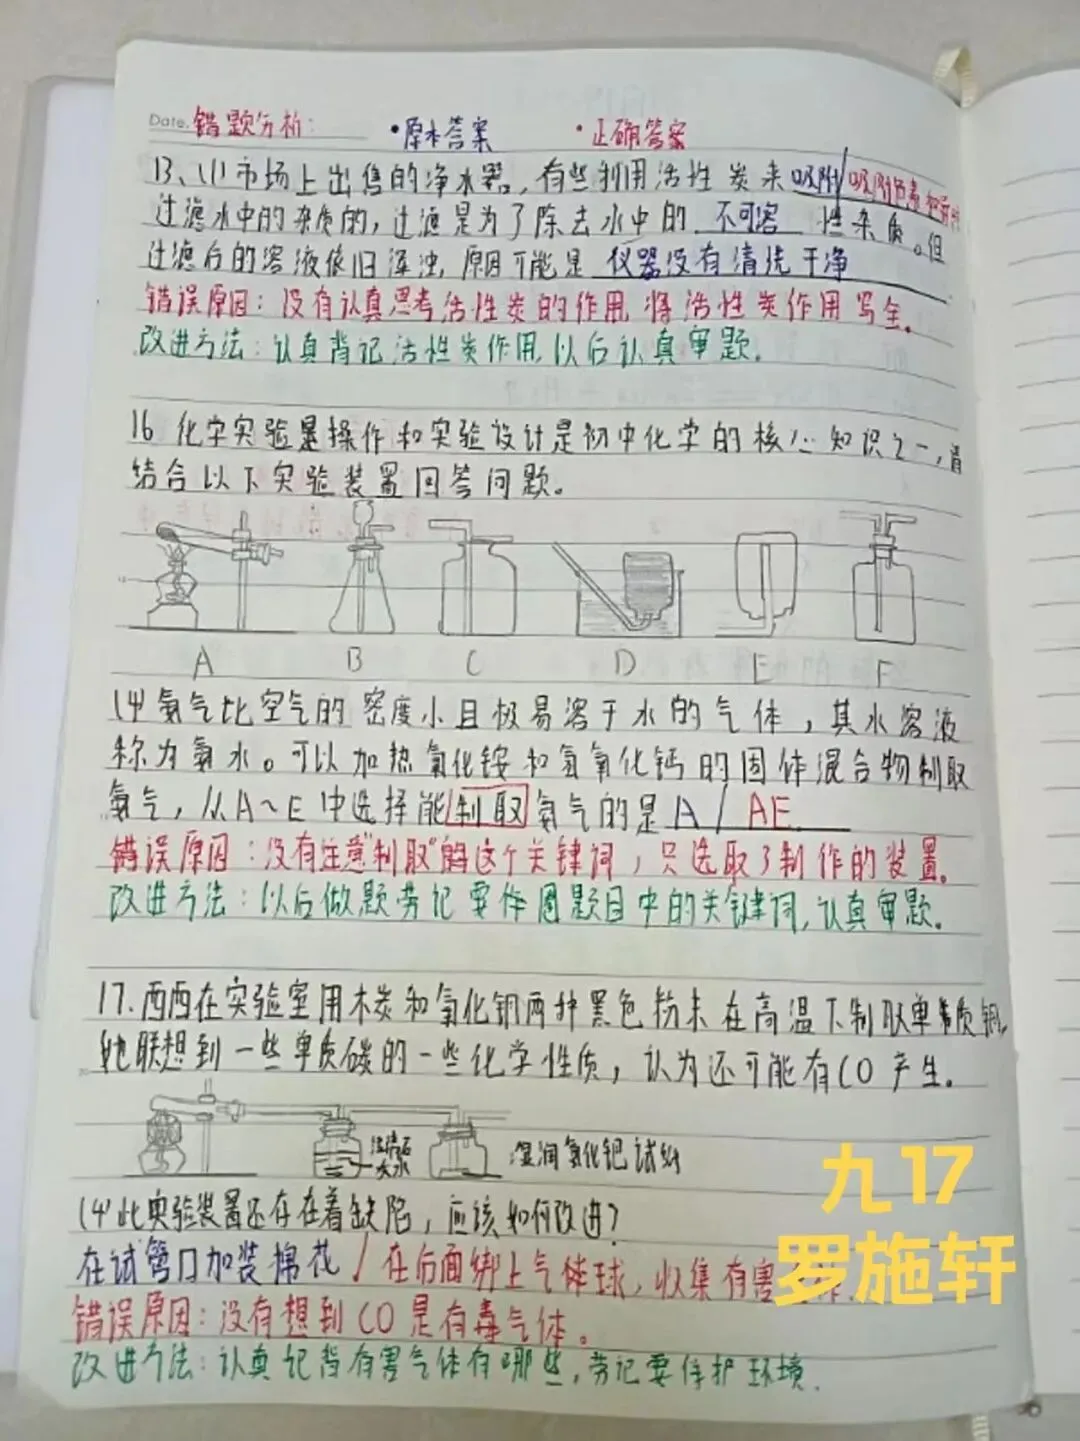 Date. 错题分析： ·原本答案 ·正确答案
13、(1)市场上出售的净水器，有些利用活性炭来吸附/吸附色素和异味
过滤水中的杂质的，过滤是为了除去水中的 不可溶 性杂质。但
过滤后的溶液依旧浑浊，原因可能是 仪器没有清洗干净
错误原因：没有认真思考活性炭的作用，将活性炭作用写全。
改进方法：认真背记活性炭作用，以后认真审题。
16 化学实验是操作和实验设计是初中化学的核心知识之一，请
结合以下实验装置回答问题。
A B C D E F
(4)氨气比空气的密度小且极易溶于水的气体，其水溶液
称为氨水。可以加热氯化铵和氢氧化钙的固体混合物制取
氨气，从A~E中选择能制取氨气的是A/AE
错误原因：没有注意"制取"的这个关键词，只选取了制作的装置。
改进方法：以后做题劳记要作圈题目中的关键词，认真审题。
17.西西在实验室用木炭和氧化铜两种黑色粉末在高温下制取单质铜，
她联想到一些单质碳的一些化学性质，认为还可能有CO产生。
澄清石
灰水
湿润氯化钯试纸
(4)此实验装置还存在着缺陷，应该如何改进？
在试管口加装棉花/在后面绑上气体球，收集有害
错误原因：没有想到CO是有毒气体。
改进方法：认真记背有害气体有哪些，劳记要保护环境.
九17
罗施轩